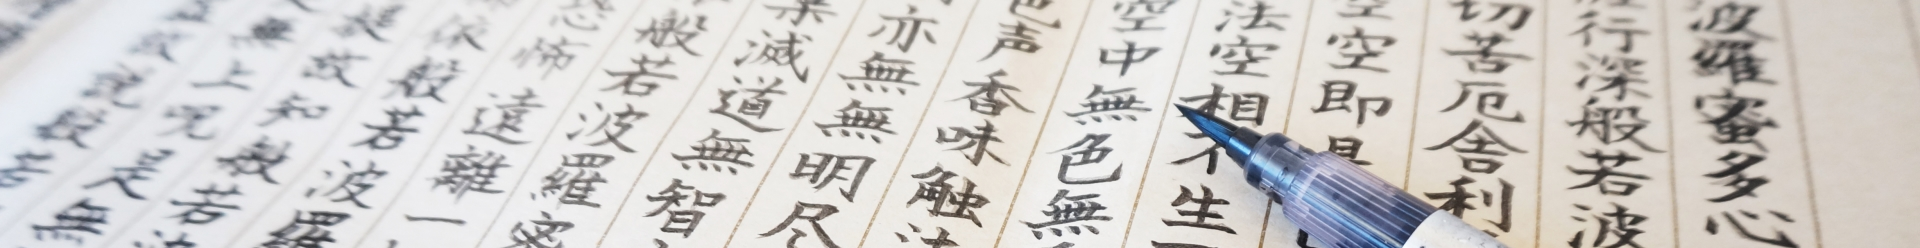 波羅蜜多心
行深般若波
切苦厄舎利
空空即是
法空相不生
空中無色無
色声香味触法
亦無無明尽
滅道無智
般若波羅蜜
恐怖遠離一
依般若波羅
提故知般若波
無上呪是無
故説般若